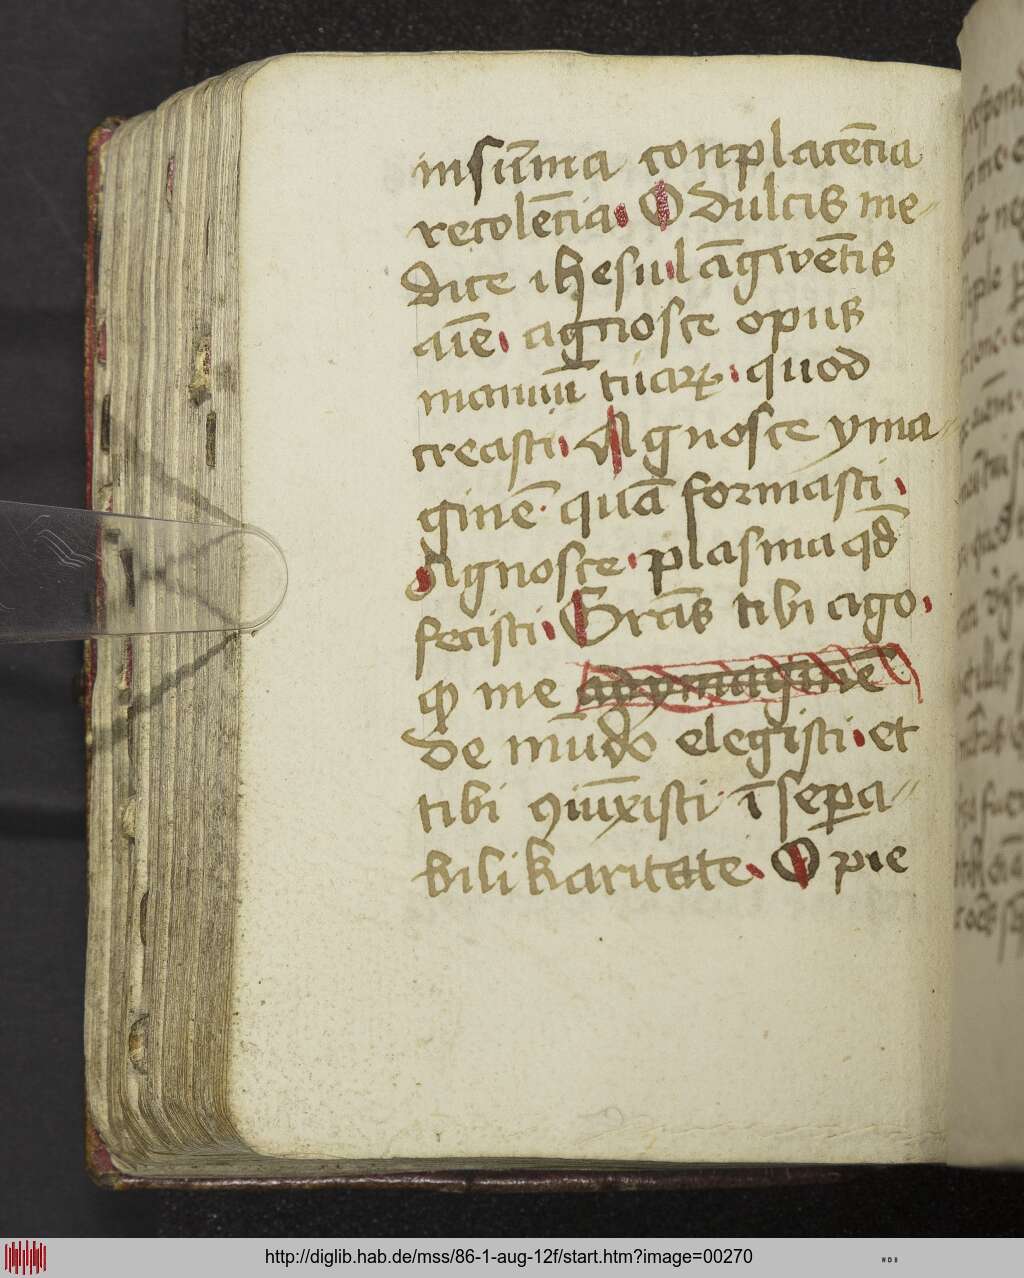 in su̅m̅a conplace̅cia
recole̅cia. O dulcis me-
dice ihesu la̅gwe̅tis
ai̅e. agnosce opus
manuu̅ tuaꝝ. quod
creasti. Agnosce yma-
gine̅ qua̅ formasti.
Agnosce. plasma qd̅
fecisti. Gra̅s tibi ago.
ꝙ me ad ymagine̅
de mu̅do elegisti. et
tibi ꝯiu̅xisti. i̅ seꝑa-
bili karitate. O pie
http://diglib.hab.de/mss/86-1-aug-12f/start.htm?image=00270